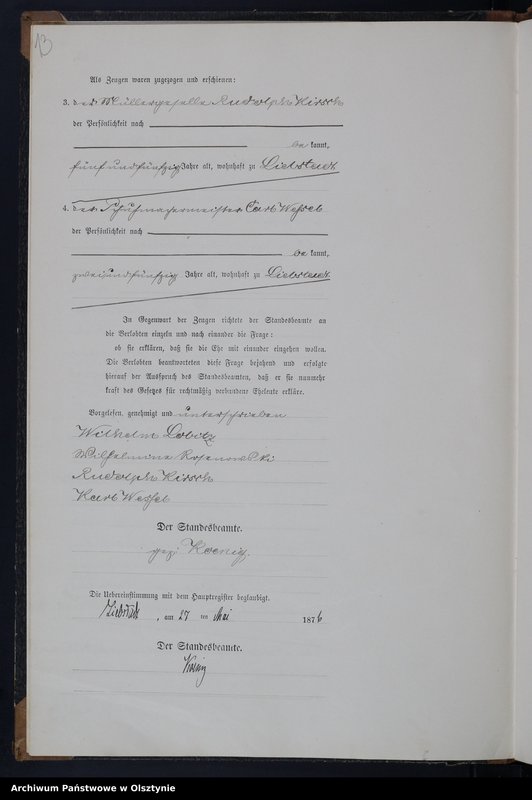 13
Als Zeugen waren zugezogen und erschienen:
3. der Müllergeselle Rudolph Kirsch
der Persönlichkeit nach
be kannt,
fünfundfünfzig Jahre alt, wohnhaft zu Liebstadt
4. der Schuhmachermeister Carl Wessel
der Persönlichkeit nach
be kannt,
zweiundfünfzig Jahre alt, wohnhaft zu Liebstadt
In Gegenwart der Zeugen richtete der Standesbeamte an
die Verlobten einzeln und nach einander die Frage:
ob sie erklären, daß sie die Ehe mit einander eingehen wollen.
Die Verlobten beantworteten diese Frage bejahend und erfolgte
hierauf der Ausspruch des Standesbeamten, daß er sie nunmehr
kraft des Gesetzes für rechtmäßig verbundene Eheleute erkläre.
Vorgelesen, genehmigt und unterschrieben
Wilhelm Dobitz
Wilhelmine Rosenowski
Rudolph Kirsch
Karl Wessel
Der Standesbeamte.
gez. Koenig.
Die Uebereinstimmung mit dem Hauptregister beglaubigt.
Liebstadt, am 27 ten Mai 1876
Der Standesbeamte.
Koenig
Archiwum Państwowe w Olsztynie